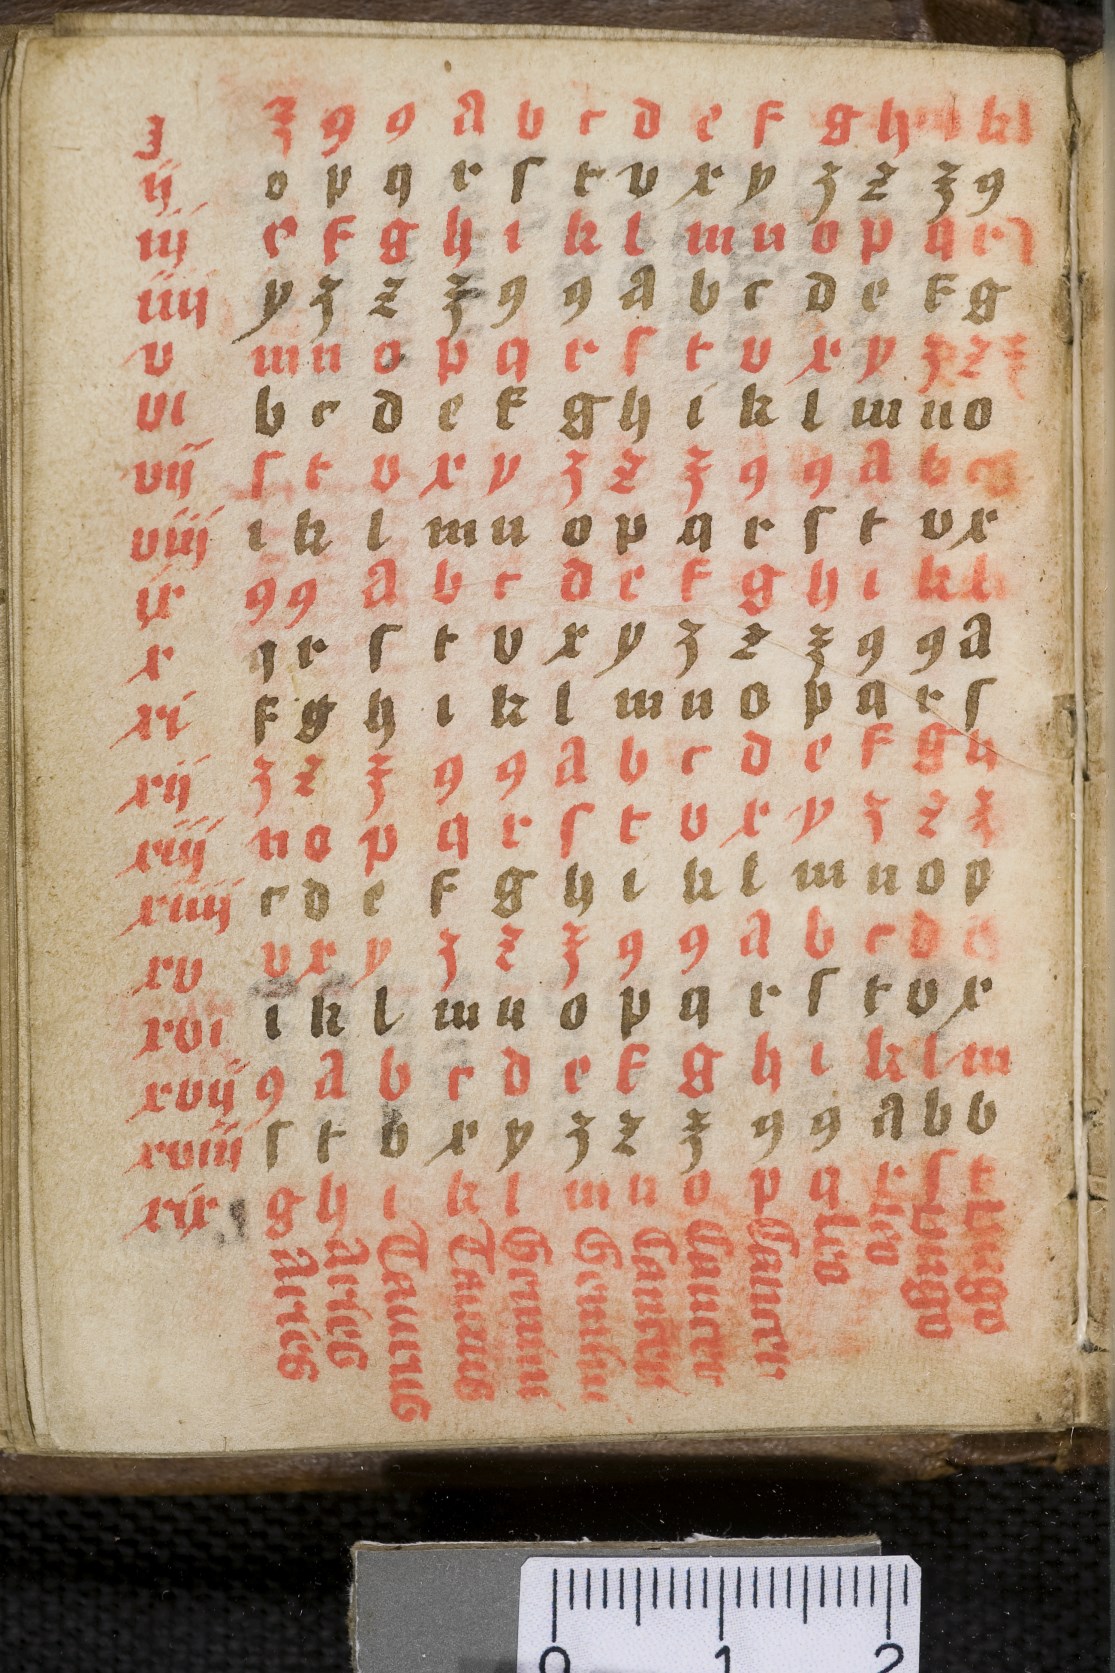 ȝ ʒ 9 9 a b c d e f g h i k l
ij o p q r ſ t v x y ȝ z ʒ 9
iij c f g h i k l m n o p q r ſ
iiij y ȝ z ʒ 9 9 a b c d e f g
v m n o p q r ſ t v x y ȝ z ʒ
vi b c d e f g h i k l m n o
vij ſ t v x y ȝ z ʒ 9 9 a b c
viij i k l m n o p q r ſ t v x
ix 9 9 a b c d e f g h i k l
x q r ſ t v x y ȝ z ʒ 9 9 a
xi f g h i k l m n o p q r ſ
xij ȝ z ʒ 9 9 a b c d e f g h
xiij n o p q r ſ t v x y ȝ z ʒ
xiiij c d e f g h i k l m n o p
xv v x y ȝ z ʒ 9 9 a b c d e
xvi i k l m n o p q r ſ t v x
xvij 9 a b c d e f g h i k l m
xviij ſ t v x y ȝ z ʒ 9 9 a b b
xix g h i k l m n o p q r ſ t
Aries
Aries
Taurus
Taurus
Gemini
Gemini
Cancer
Cancer
Cancer
Leo
Leo
Uirgo
Uirgo
0 1 2